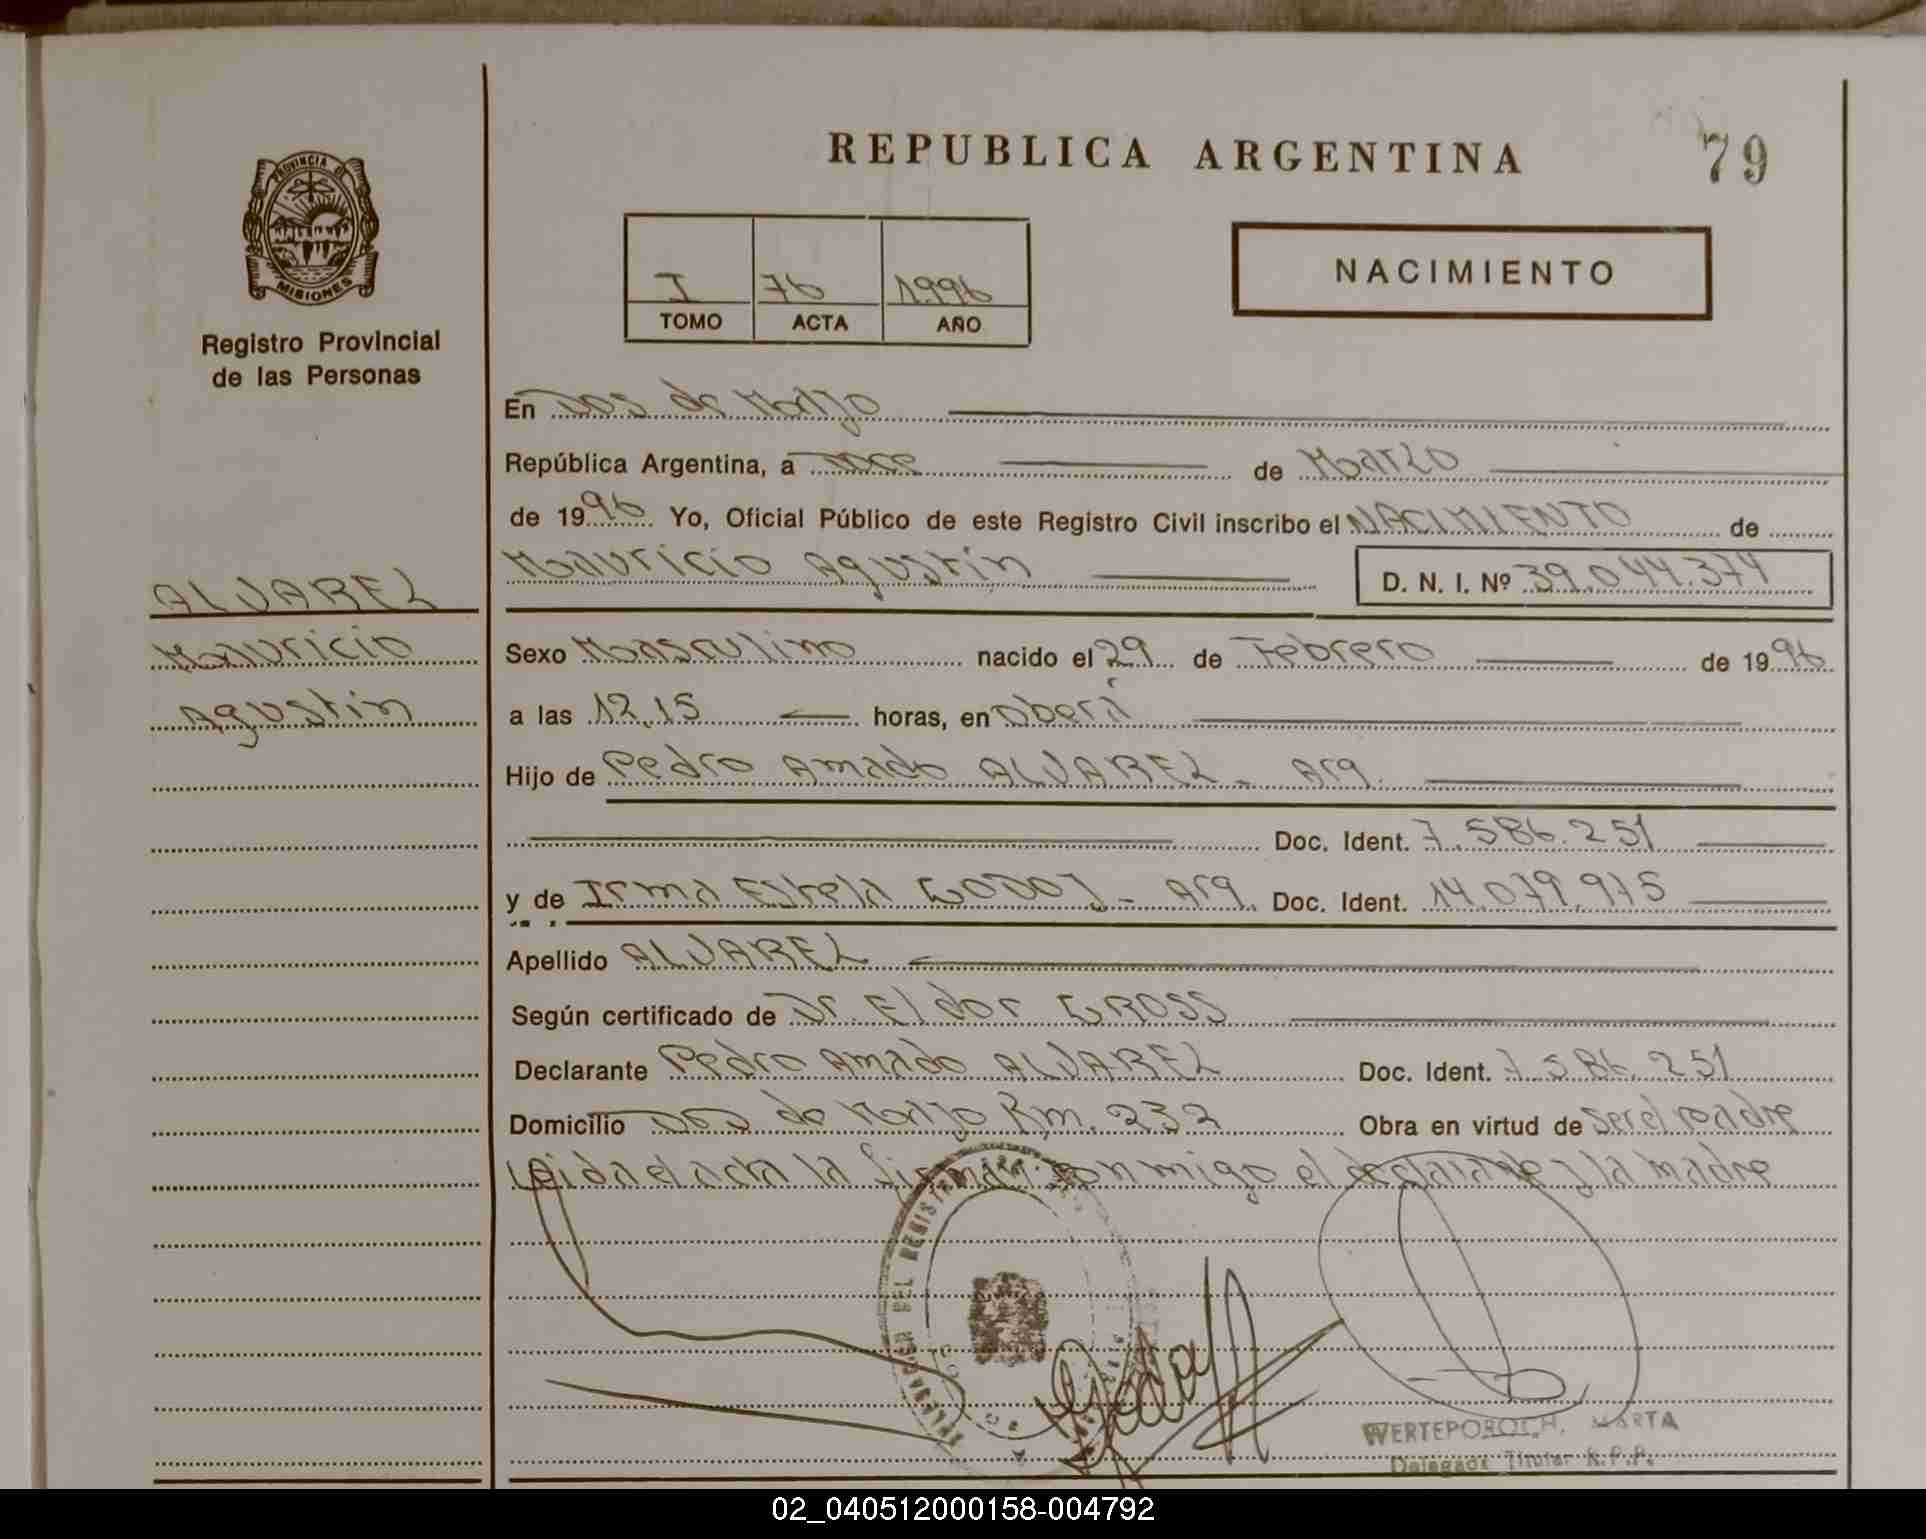 REPUBLICA ARGENTINA
79
PROVINCIA DE
MISIONES
Registro Provincial
de las Personas
I 76 1996
TOMO ACTA AÑO
NACIMIENTO
En Dos de Mayo
República Argentina, a once de Marzo
de 1996 Yo, Oficial Público de este Registro Civil inscribo el NACIMIENTO de
Mauricio Agustin D. N. I. Nº 39.044.374
ALVAREZ
Mauricio
Agustin
Sexo Masculino nacido el 29 de Febrero de 1996
a las 12,15 horas, en Oberá
Hijo de Pedro Amado ALVAREZ - Arg.
Doc. Ident. 7.586.251
y de Irma Estela GODOY - Arg. Doc. Ident. 14.079.975
Apellido ALVAREZ
Según certificado de Dr. Eldor GROSS
Declarante Pedro Amado ALVAREZ Doc. Ident. 7.586.251
Domicilio Dos de Mayo Km. 232 Obra en virtud de ser el padre
Leida el acta la firman conmigo el declarante y la madre
DEL REGISTRO
Godoy
MARTA
Delegada Titular R.P.P.
02_040512000158-004792